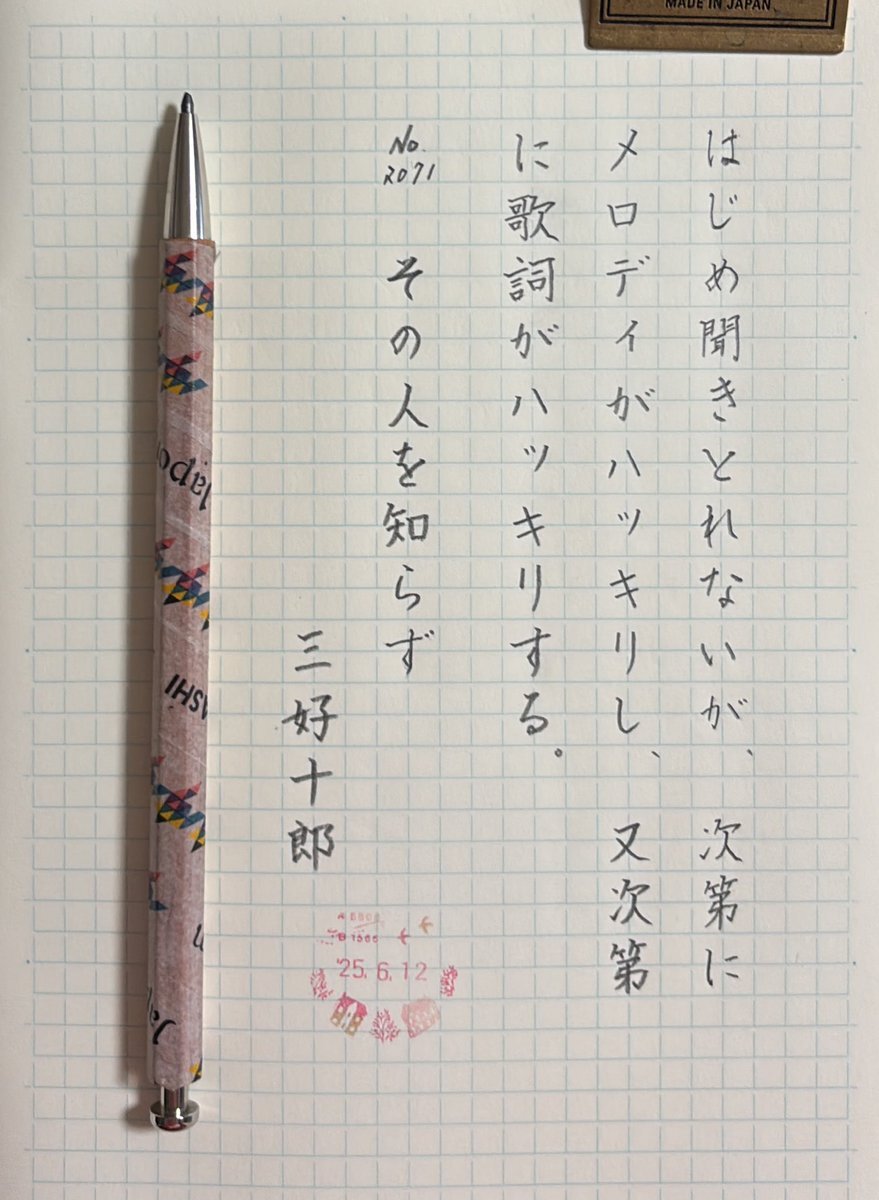 MADE IN JAPAN
はじめ聞きとれないが、次第に
メロディがハッキリし、又次第
に歌詞がハッキリする。
No.
2071
その人を知らず
三好十郎
'25.6.12